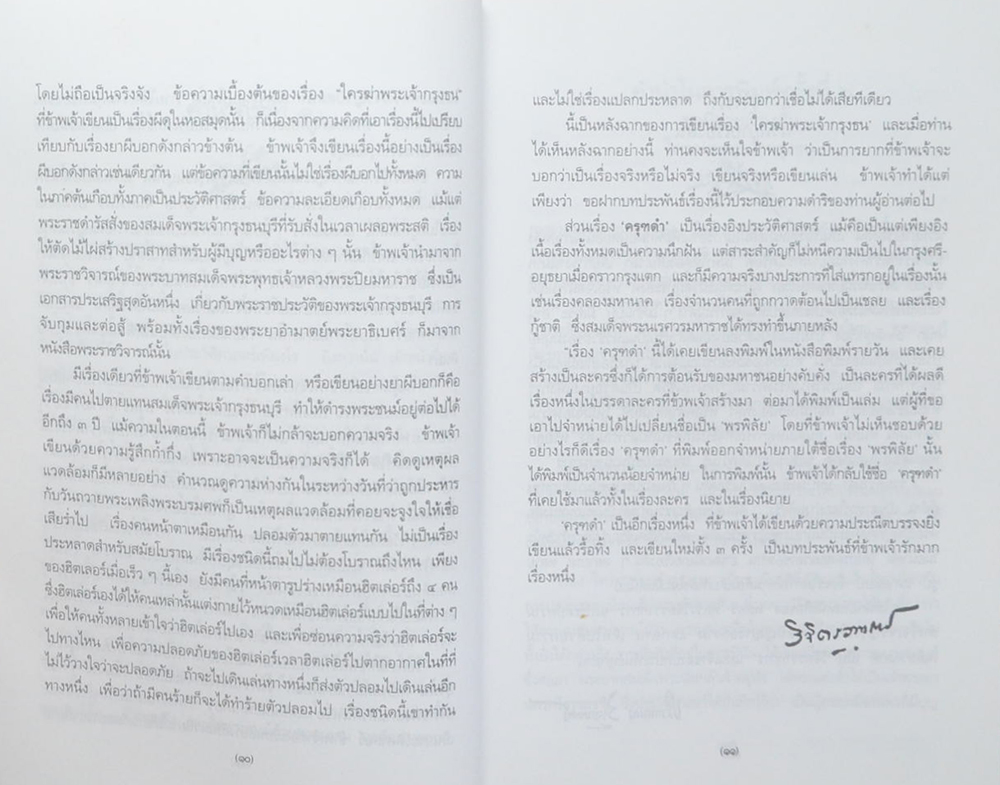 โดยไม่ถือเป็นจริงจัง ข้อความเบื้องต้นของเรื่อง "ใครฆ่าพระเจ้ากรุงธน"
ที่ข้าพเจ้าเขียนเป็นเรื่องผีดุในหอสมุดนั้น ก็เนื่องจากความคิดที่เอาเรื่องนี้ไปเปรียบ
เทียบกับเรื่องยาผีบอกดังกล่าวข้างต้น ข้าพเจ้าจึงเขียนเรื่องนี้อย่างเป็นเรื่อง
ผีบอกดังกล่าวเช่นเดียวกัน แต่ข้อความที่เขียนนั้นไม่ใช่เรื่องผีบอกไปทั้งหมด ความ
ในภาคต้นเกือบทั้งภาคเป็นประวัติศาสตร์ ข้อความละเอียดเกือบทั้งหมด แม้แต่
พระราชดำรัสสั่งของสมเด็จพระเจ้ากรุงธนบุรีที่รับสั่งในเวลาเผลอพระสติ เรื่อง
ให้ตัดไม้ไผ่สร้างปราสาทสำหรับผู้มีบุญหรืออะไรต่าง ๆ นั้น ข้าพเจ้านำมาจาก
พระราชวิจารณ์ของพระบาทสมเด็จพระพุทธเจ้าหลวงพระปิยมหาราช ซึ่งเป็น
เอกสารประเสริฐสุดอันหนึ่ง เกี่ยวกับพระราชประวัติของพระเจ้ากรุงธนบุรี การ
จับกุมและต่อสู้ พร้อมทั้งเรื่องของพระยาอำมาตย์พระยาธิเบศร์ ก็มาจาก
หนังสือพระราชวิจารณ์นั้น
มีเรื่องเดียวที่ข้าพเจ้าเขียนตามคำบอกเล่า หรือเขียนอย่างยาผีบอกก็คือ
เรื่องมีคนไปตายแทนสมเด็จพระเจ้ากรุงธนบุรี ทำให้ดำรงพระชนม์อยู่ต่อไปได้
อีกถึง ๓ ปี แม้ความในตอนนี้ ข้าพเจ้าก็ไม่กล้าจะบอกความจริง ข้าพเจ้า
เขียนด้วยความรู้สึกก้ำกึ่ง เพราะอาจจะเป็นความจริงก็ได้ คิดดูเหตุผล
แวดล้อมก็มีหลายอย่าง คำนวณดูความห่างกันในระหว่างวันที่ว่าถูกประหาร
กับวันถวายพระเพลิงพระบรมศพก็เป็นเหตุผลแวดล้อมที่คอยจะจูงใจให้เชื่อ
เสียร่ำไป เรื่องคนหน้าตาเหมือนกัน ปลอมตัวมาตายแทนกัน ไม่เป็นเรื่อง
ประหลาดสำหรับสมัยโบราณ มีเรื่องชนิดนี้ถมไปไม่ต้องโบราณถึงไหน เพียง
ของฮิตเลอร์เมื่อเร็ว ๆ นี้เอง ยังมีคนที่หน้าตารูปร่างเหมือนฮิตเล่อร์ถึง ๔ คน
ซึ่งฮิตเล่อร์เองได้ให้คนเหล่านั้นแต่งกายไว้หนวดเหมือนฮิตเล่อร์แบบไปในที่ต่าง ๆ
เพื่อให้คนทั้งหลายเข้าใจว่าฮิตเล่อร์ไปเอง และเพื่อซ่อนความจริงว่าฮิตเล่อร์จะ
ไปทางไหน เพื่อความปลอดภัยของฮิตเล่อร์เวลาฮิตเล่อร์ไปตากอากาศในที่ที่
ไม่ไว้วางใจว่าจะปลอดภัย ถ้าจะไปเดินเล่นทางหนึ่งก็ส่งตัวปลอมไปเดินเล่นอีก
ทางหนึ่ง เพื่อว่าถ้ามีคนร้ายก็จะได้ทำร้ายตัวปลอมไป เรื่องชนิดนี้เขาทำกัน
(๑๐)
และไม่ใช่เรื่องแปลกประหลาด ถึงกับจะบอกว่าเชื่อไม่ได้เสียทีเดียว
นี้เป็นหลังฉากของการเขียนเรื่อง 'ใครฆ่าพระเจ้ากรุงธน' และเมื่อท่าน
ได้เห็นหลังฉากอย่างนี้ ท่านคงจะเห็นใจข้าพเจ้า ว่าเป็นการยากที่ข้าพเจ้าจะ
บอกว่าเป็นเรื่องจริงหรือไม่จริง เขียนจริงหรือเขียนเล่น ข้าพเจ้าทำได้แต่
เพียงว่า ขอฝากบทประพันธ์เรื่องนี้ไว้ประกอบความดำริของท่านผู้อ่านต่อไป
ส่วนเรื่อง 'ครุฑดำ' เป็นเรื่องอิงประวัติศาสตร์ แม้คือเป็นแต่เพียงอิง
เนื้อเรื่องทั้งหมดเป็นความนึกฝัน แต่สาระสำคัญก็ไม่หนีความเป็นไปในกรุงศรี-
อยุธยาเมื่อคราวกรุงแตก และก็มีความจริงบางประการที่ใส่แทรกอยู่ในเรื่องนั้น
เช่นเรื่องคลองมหานาค เรื่องจำนวนคนที่ถูกกวาดต้อนไปเป็นเชลย และเรื่อง
กู้ชาติ ซึ่งสมเด็จพระนเรศวรมหาราชได้ทรงทำขึ้นภายหลัง
"เรื่อง 'ครุฑดำ' นี้ได้เคยเขียนลงพิมพ์ในหนังสือพิมพ์รายวัน และเคย
สร้างเป็นละครซึ่งก็ได้การต้อนรับของมหาชนอย่างคับคั่ง เป็นละครที่ได้ผลดี
เรื่องหนึ่งในบรรดาละครที่ข้าพเจ้าสร้างมา ต่อมาได้พิมพ์เป็นเล่ม แต่ผู้ที่ขอ
เอาไปจำหน่ายได้ไปเปลี่ยนชื่อเป็น 'พรพิลัย' โดยที่ข้าพเจ้าไม่เห็นชอบด้วย
อย่างไรก็ดีเรื่อง 'ครุฑดำ' ที่พิมพ์ออกจำหน่ายภายใต้ชื่อเรื่อง 'พรพิลัย' นั้น
ได้พิมพ์เป็นจำนวนน้อยจำหน่าย ในการพิมพ์นั้น ข้าพเจ้าได้กลับใช้ชื่อ 'ครุฑดำ'
ที่เคยใช้มาแล้วทั้งในเรื่องละคร และในเรื่องนิยาย
'ครุฑดำ' เป็นอีกเรื่องหนึ่ง ที่ข้าพเจ้าได้เขียนด้วยความประณีตบรรจงยิ่ง
เขียนแล้วรื้อทิ้ง และเขียนใหม่ตั้ง ๓ ครั้ง เป็นบทประพันธ์ที่ข้าพเจ้ารักมาก
เรื่องหนึ่ง
วิจิตรวาทการ
(๑๑)